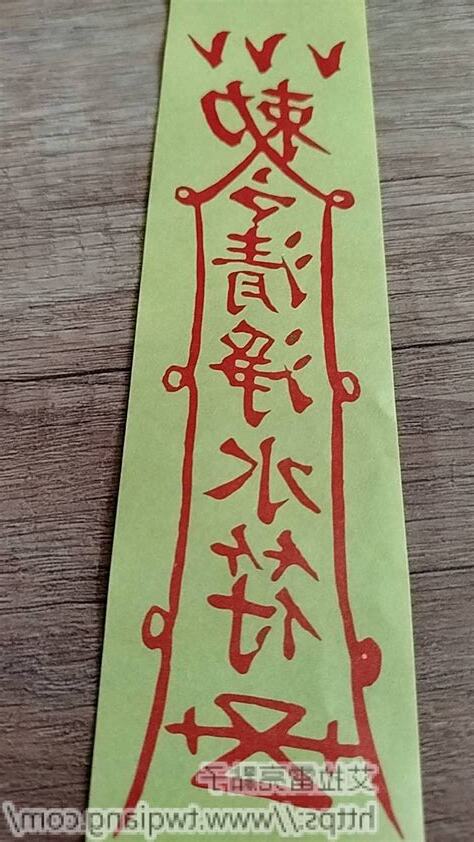 敕
令
清
淨
水
符
艾拉雷克點子
https://www.twqiang.com/